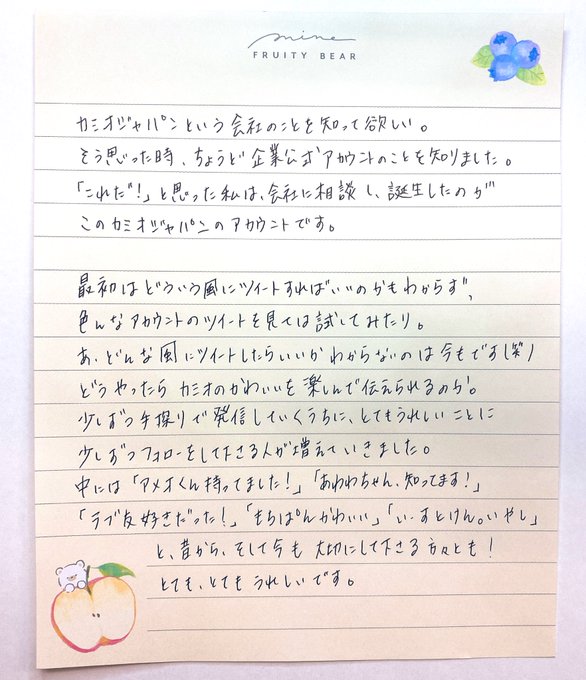 mine
FRUITY BEAR
カミオジャパンという会社のことを知って欲しい。
そう思った時、ちょうど企業公式アカウントのことを知りました。
「これだ!」と思った私は、会社に相談し、誕生したのが
このカミオジャパンのアカウントです。
最初はどういう風にツイートすればいいのかもわからず、
色んなアカウントのツイートを見ては試してみたり。
あ、どんな風にツイートしたらいいかわからないのは今もです(笑)
どうやったらカミオのかわいいを楽しんで伝えられるのか。
少しずつ手探りで発信していくうちに、とてもうれしいことに
少しずつフォローをして下さる人が増えていきました。
中には「アメオくん持ってました!」「あわわちゃん、知ってます!」
「ラブ友好きだった!」「もちぱんかわいい」「い〜すとけん。いやし」
と、昔から、そして今も大切にして下さる方々とも!
とても、とてもうれしいです。